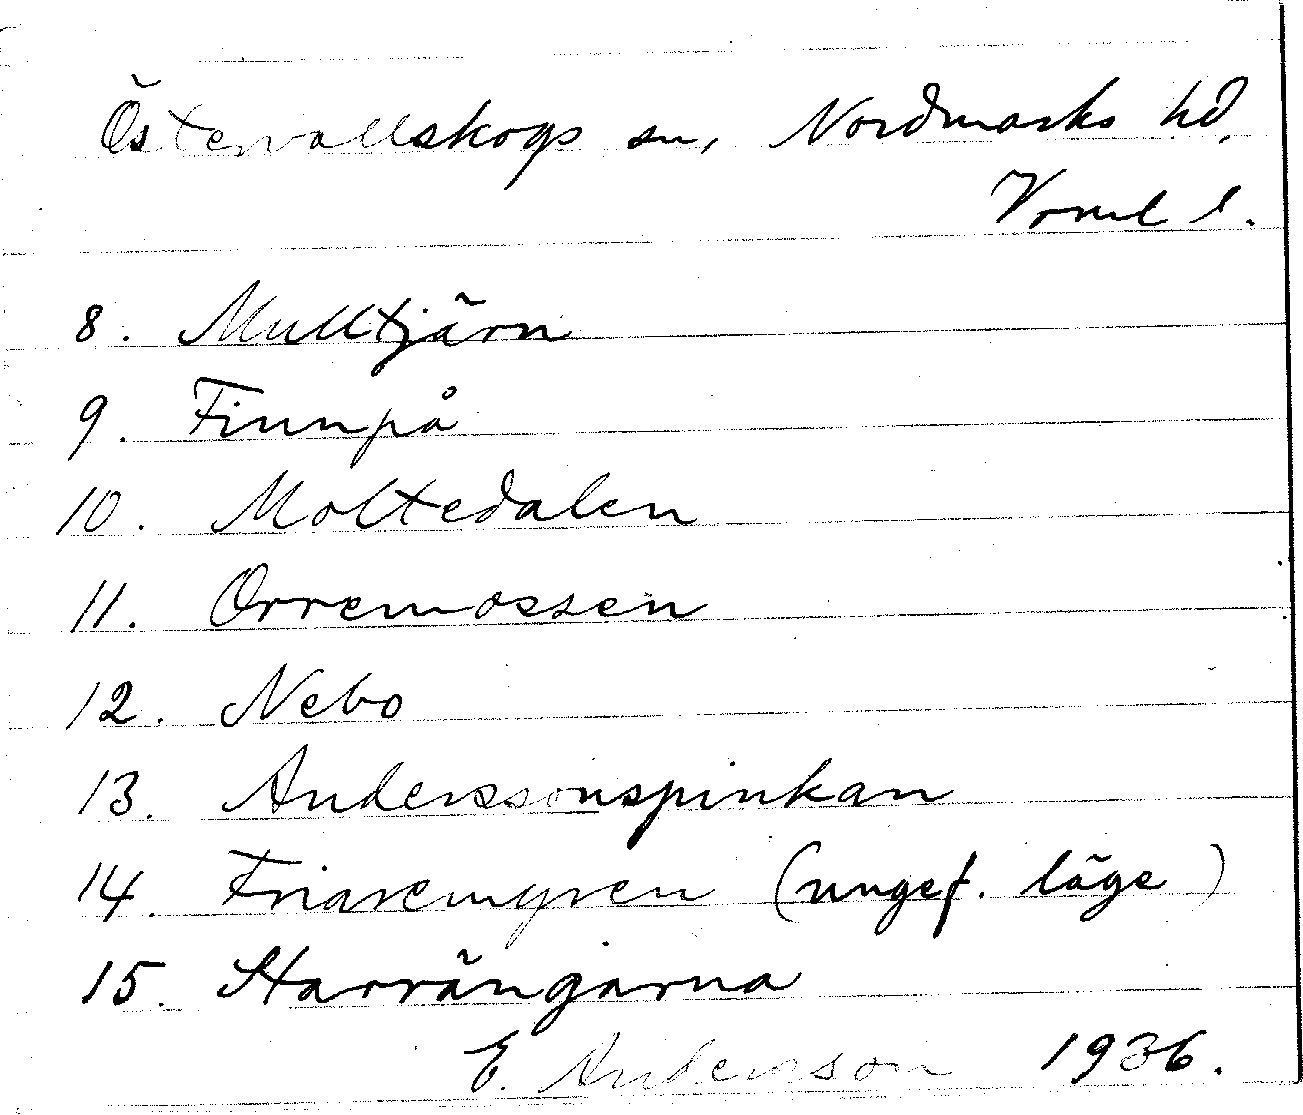 Östervallskogs sn, Nordmarks hd,
Värml l.
8. Mulltjärn
9. Finnpå
10. Moltedalen
11. Orremossen
12. Nebo
13. Anderssonspinkan
14. Friaremyren (ungef. läge)
15. Starrängarna
E. Anderson 1936.